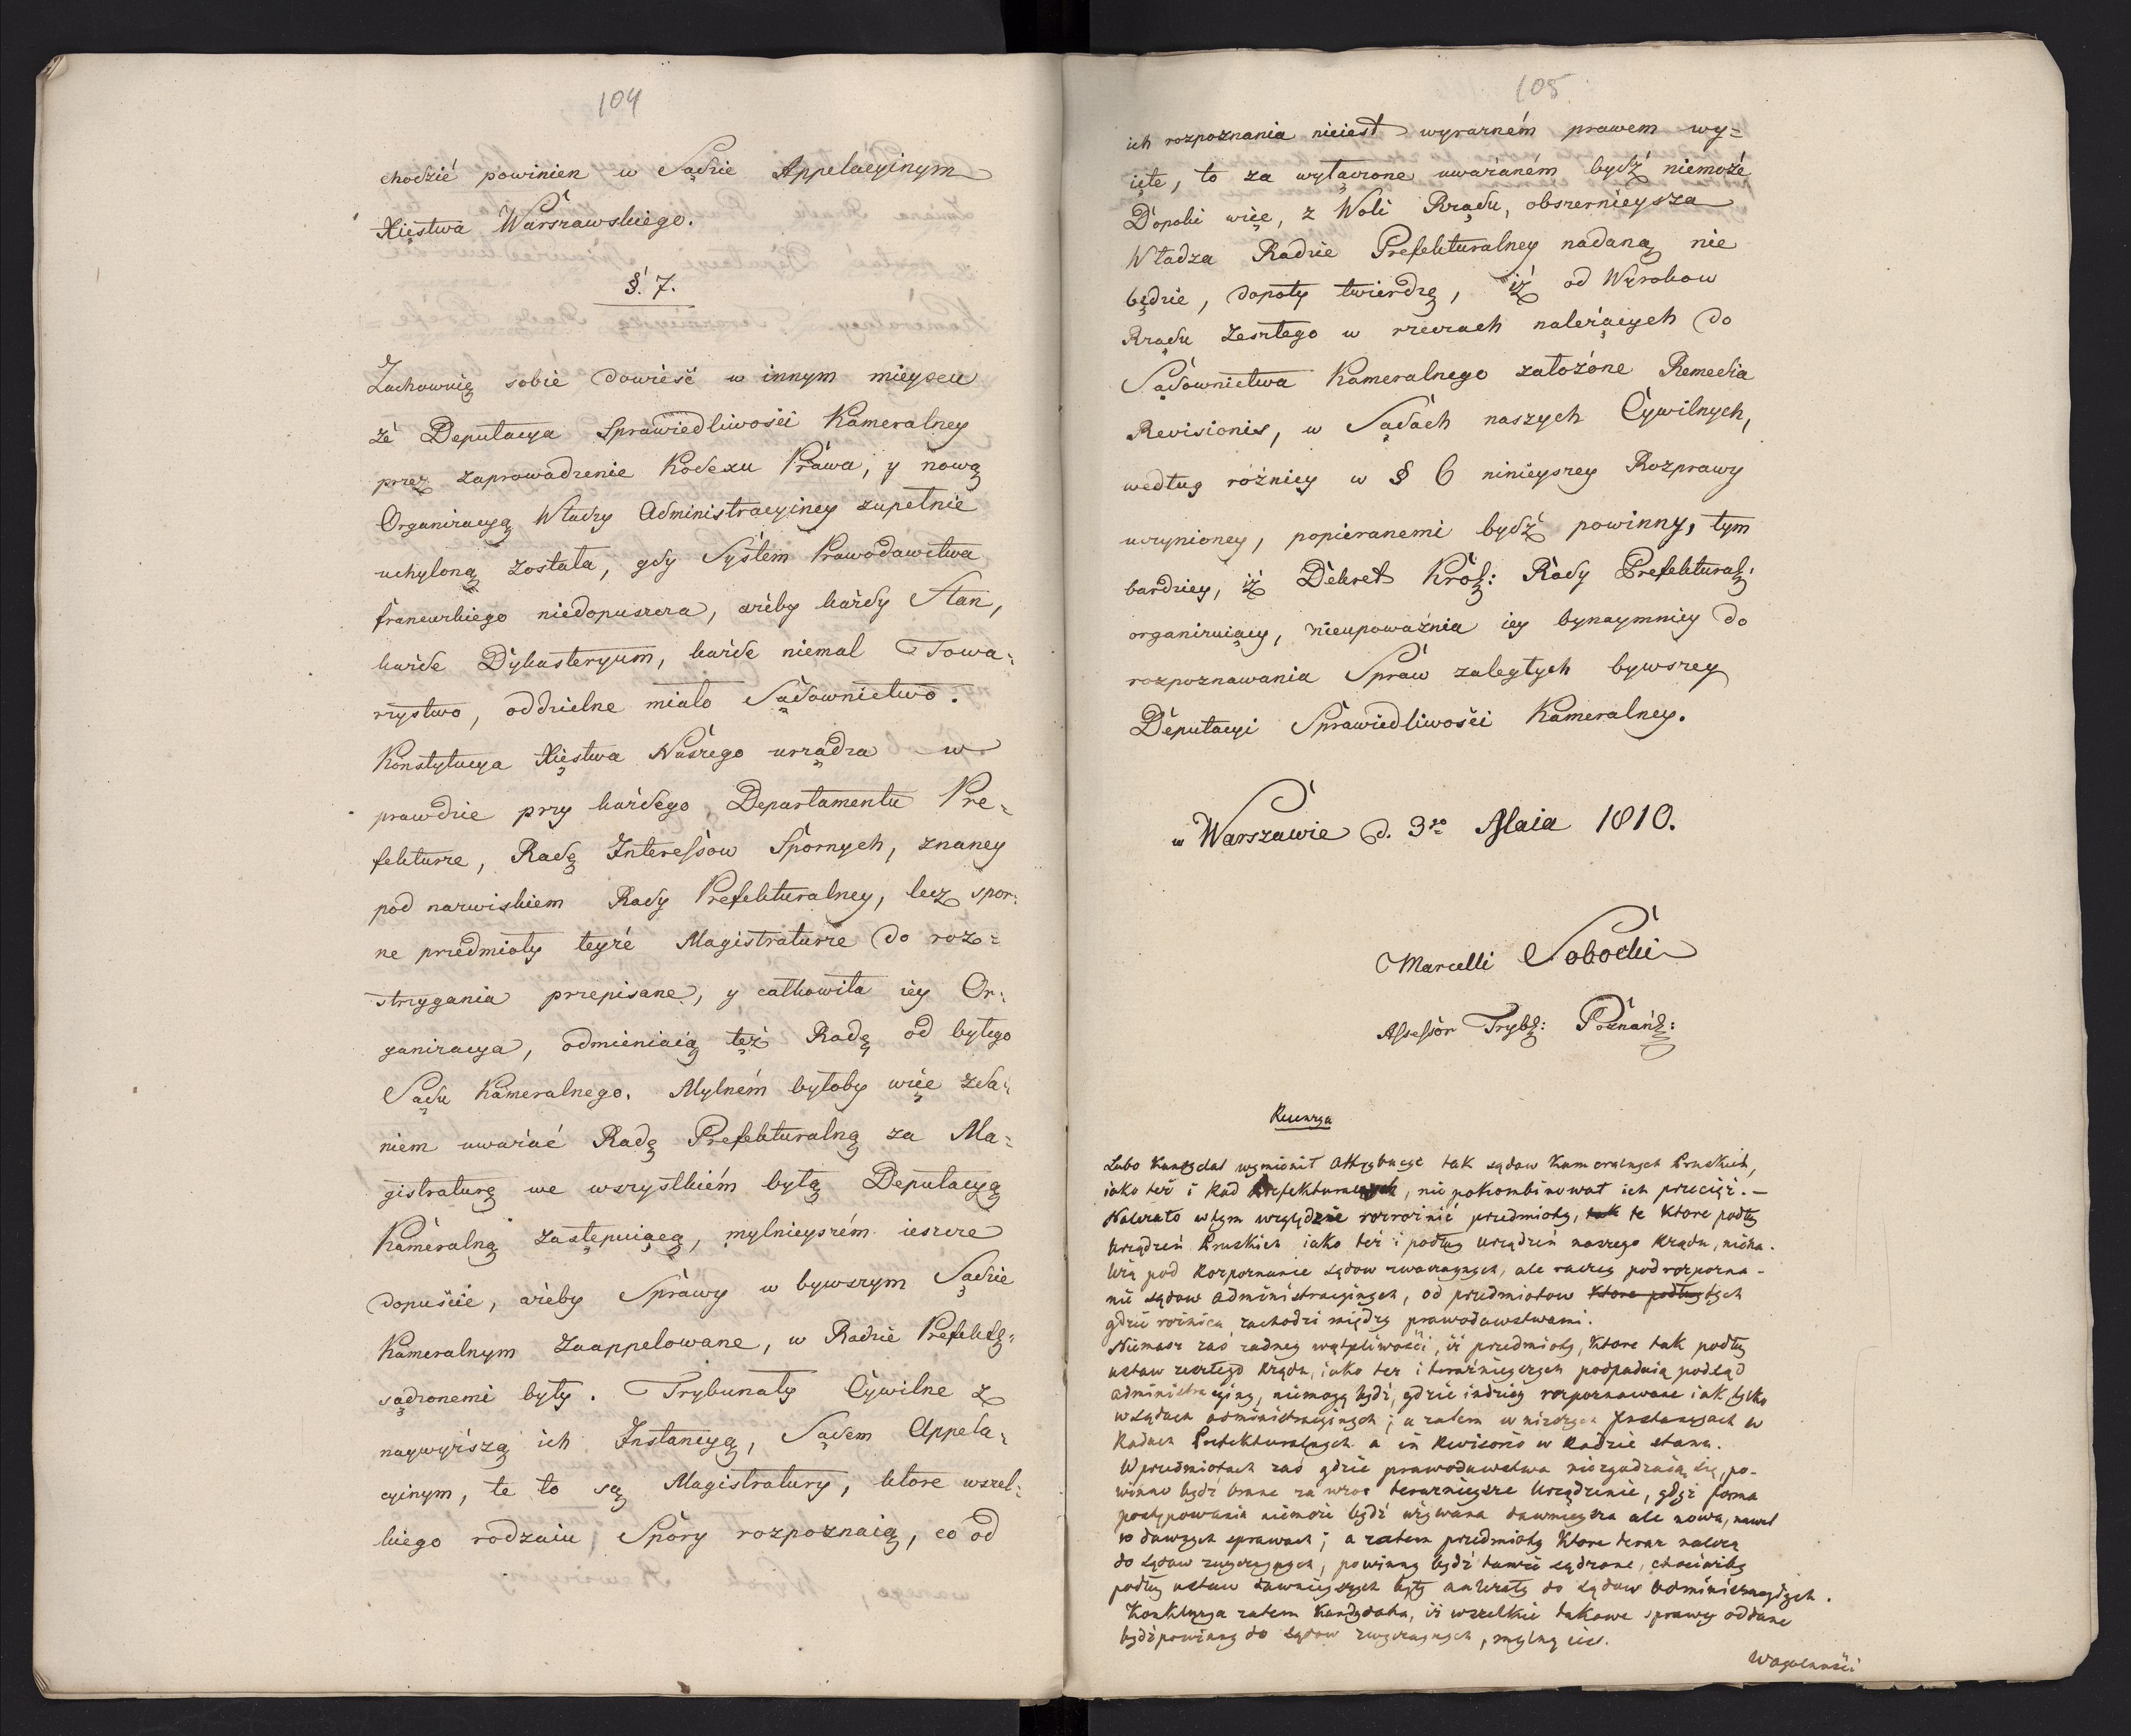 104
chodzić powinien w Sądzie Appelacyinym
Xięstwa Warszawskiego.
§. 7.
Zachowuię sobie dowieść w innym mieyscu
że Deputacya Sprawiedliwości Kameralney
przez zaprowadzenie Kodexu Prawa, y nową
Organizacyą Władzy Administracyiney zupełnie
uchyloną została, gdy System Prawodawstwa
francuzkiego niedopuszcza, ażeby każdy Stan,
każde Dykasteryum, każde niemal Towa=
rzystwo, oddzielne miało Sądownictwo.
Konstytucya Xięstwa Naszego urządza w
prawdzie przy każdego Departamentu Pre=
fekturze, Radę Interessow Spornych, znaney
pod nazwiskiem Rady Prefekturalney, lecz spor=
ne przedmioty teyże Magistraturze do roz=
strzygania przepisane, y całkowita iey Or=
ganizacya, odmieniaią też Radę od byłego
Sądu Kameralnego. Mylném byłoby więc zda=
niem uważać Radę Prefekturalną za Ma=
gistraturę we wszystkiém byłą Deputacyą
Kameralną zastępuiącą, mylnieyszém ieszcze
dopuście, ażeby Sprawy w bywszym Sądzie
Kameralnym zaappelowane, w Radzie Prefekt:
sądzonemi były. Trybunały Cywilne z
naywyższą ich Instancyą, Sądem Appela=
cyinym, te to są Magistratury, ktore wszel=
kiego rodzaiu Spory rozpoznaią, co od
105
ich rozpoznania nieiest wyraźném prawem wy=
ięte, to za wyłączone uważaném bydź niemoże
Dopoki więc, z Woli Rządu, obszernieysza
Władza Radzie Prefekturalney nadaną nie
będzie, dopoty twierdzę, iż od Wyrokow
Rządu zeszłego w rzeczach należących do
Sądownictwa Kameralnego założone Remedia
Revisionis, w Sądach naszych Cywilnych,
według różnicy w § 6 ninieyszey Rozprawy
uczynioney, popieranemi bydź powinny, tym
bardziey, iż Dekret Król: Rady Prefektural:
organizuiący, nieupoważnia iey bynaymniey do
rozpoznawania Spraw zaległych bywszey
Deputacyi Sprawiedliwości Kameralney.
w Warszawie d. 3go Maia 1810.
Marcelli Sobocki
Assessor Tryb: Poznańs:
Recenzya
Lubo Kandydat wymienił Attrybucye tak sądow Kameralnych Pruskich,
iako też i Rad Prefekturalnych, nie pokombinował ich przecież. —
Należało w tym względzie rozrożnić przedmioty, tak te ktore podług
Urządzeń Pruskich iako też i podług Urządzeń naszego Rządu, niena-
leżą pod Rozpoznanie sądow zwyczaynych, ale raczey pod rozpozna-
nie sądow administracyinych, od przedmiotow ktore podług tych
gdzie rożnica zachodzi między prawodawstwami.
Niemasz zaś żadney wątpliwości, iż przedmioty, ktore tak podług
ustaw zeszłego Rządu, iako też i teraźnieyszych podpadaią pod sąd
administracyiny, niemogą bydź, gdzie indziey rozpoznawane iak tylko
w sądach administracyinych; a zatem w niższych Instancyach w
Radach Prefekturalnych a in Revisorio w Radzie stanu.
W przedmiotach zaś gdzie prawodawstwa niezgadzaią się, po-
winno bydź brane za wzor teraźnieysze Urządzenie, gdyż forma
postępowania niemoże bydź używana dawnieysza ale nowa, nawet
w dawnych sprawach; a zatem przedmioty ktore teraz należą
do sądow zwyczaynych, powinny bydź tamże sądzone, chociażby
podług ustaw dawnieyszych były należały do sądow administracyinych.
Konkluzya zatem Kandydata, iż wszelkie takowe sprawy oddane
bydź powinny do sądow zwyczaynych, mylną iest.
W ogulności